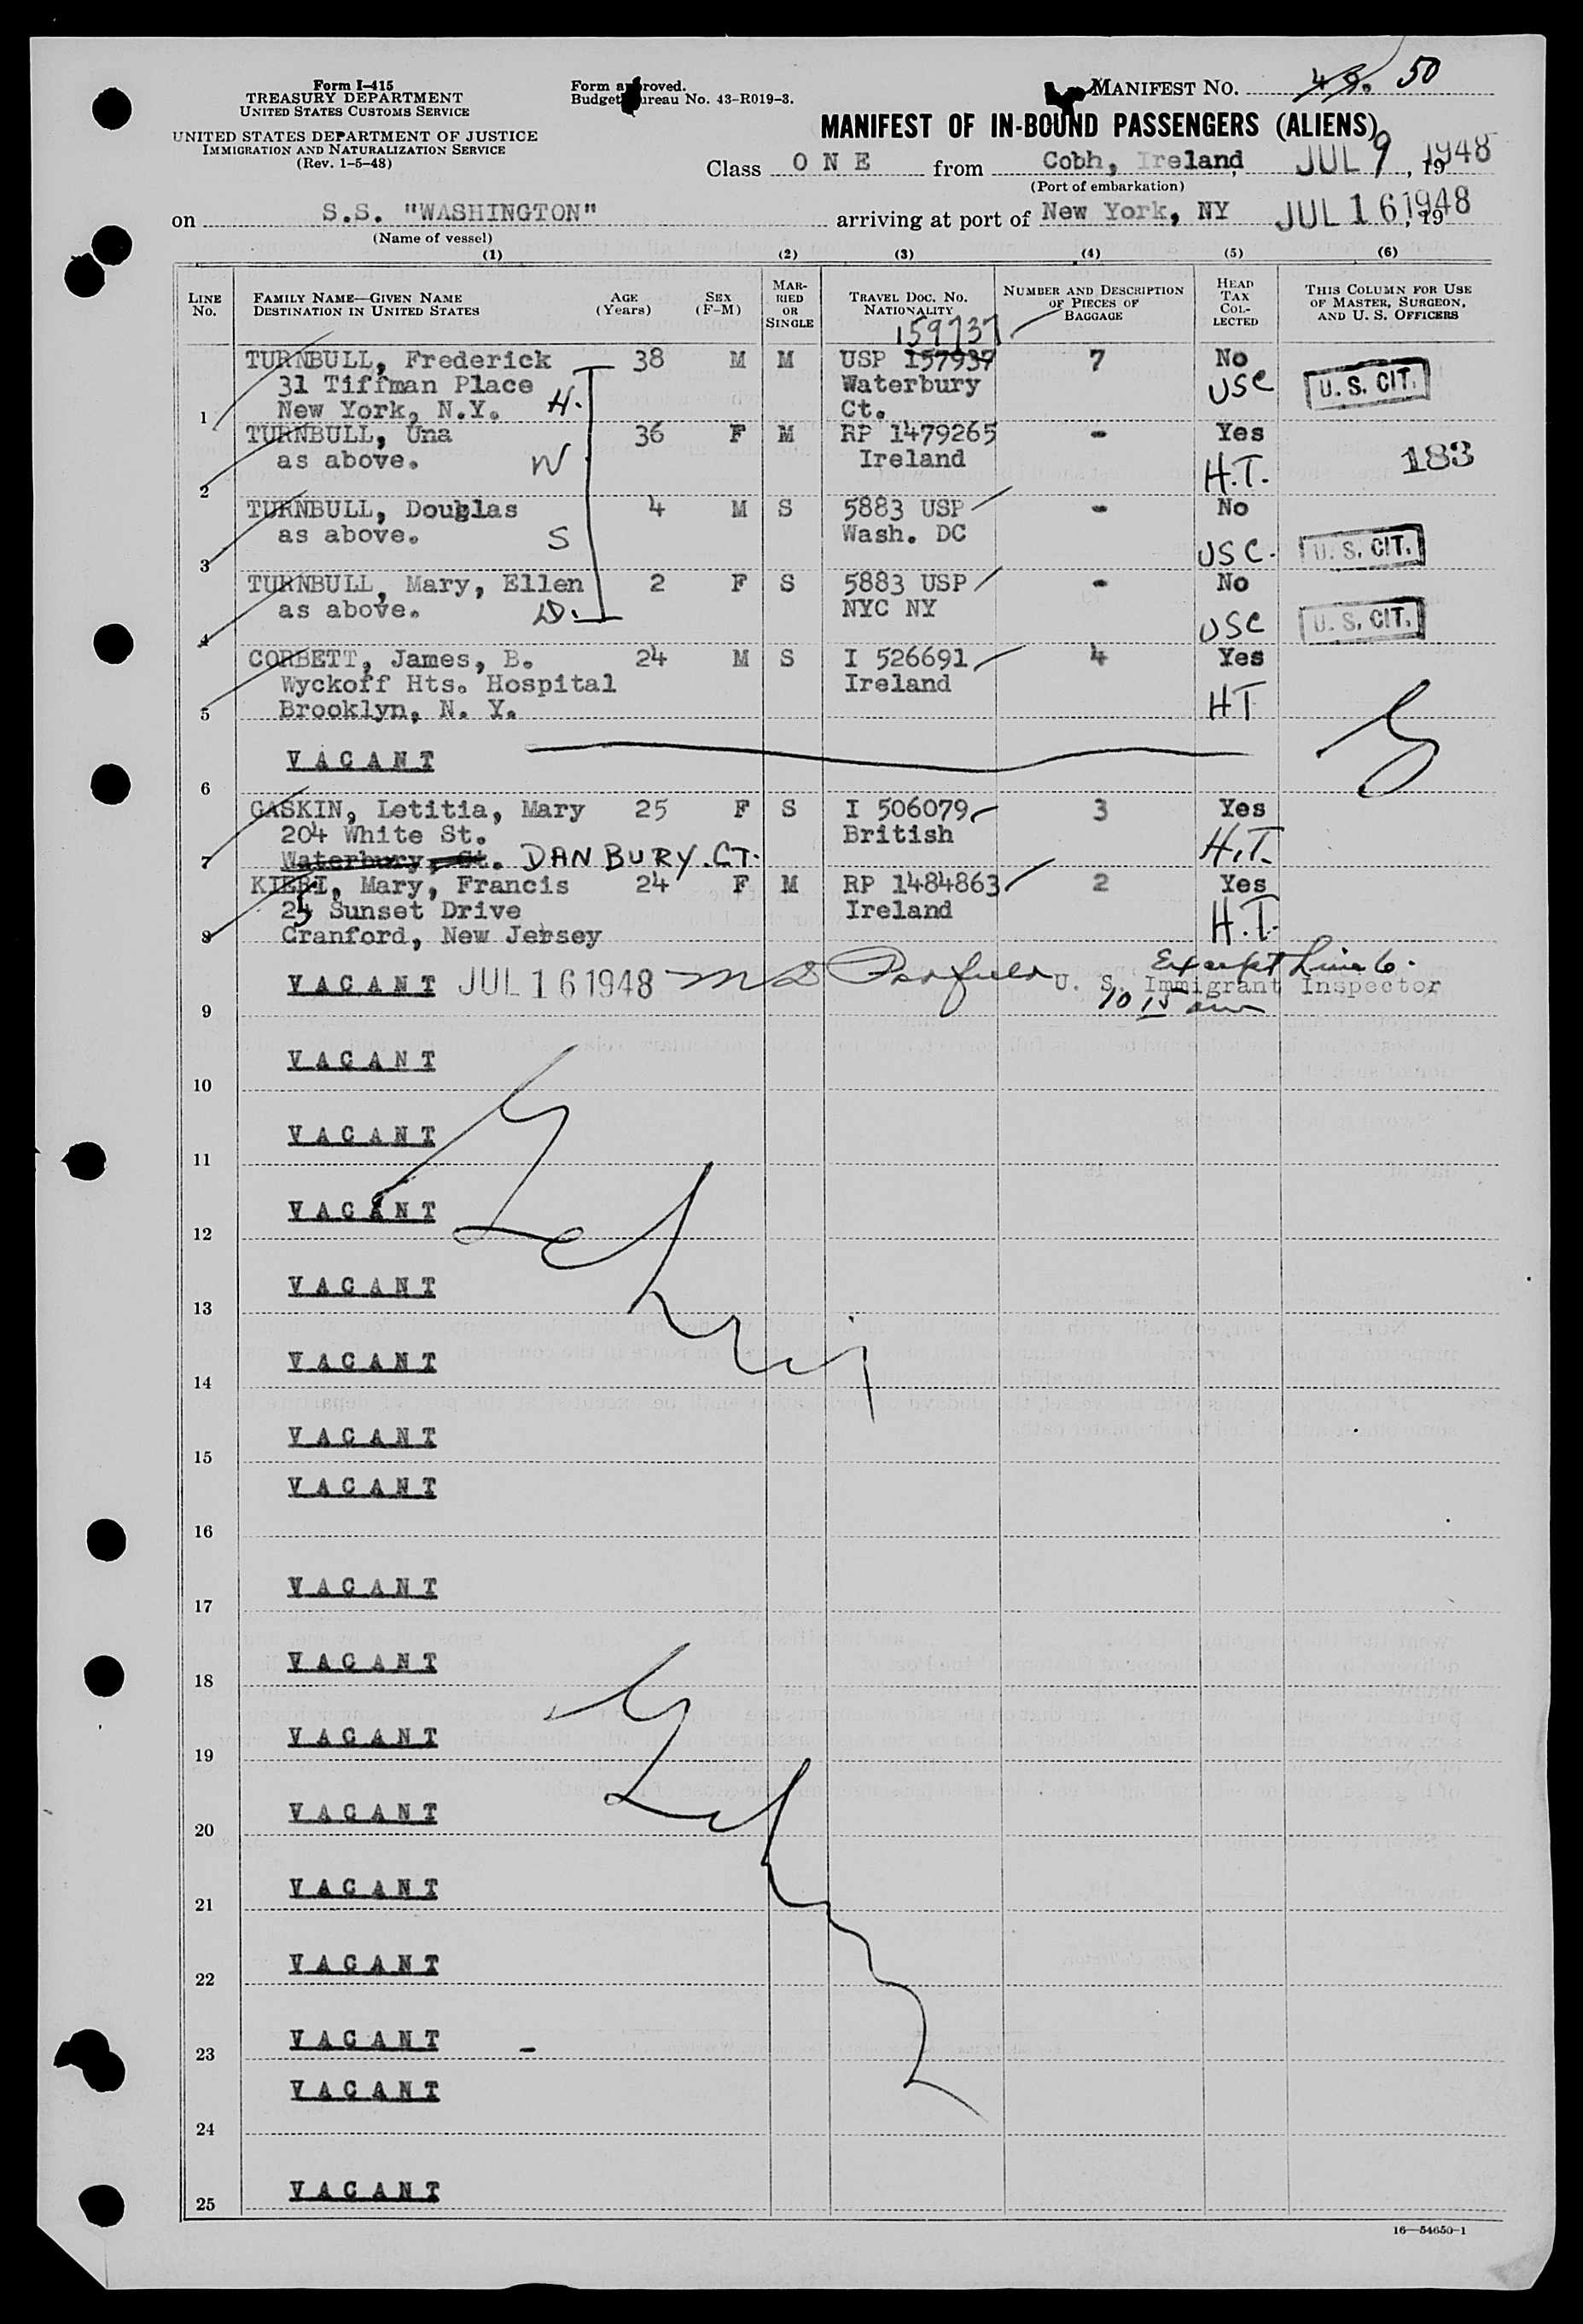 Form I-415
TREASURY DEPARTMENT
UNITED STATES CUSTOMS SERVICE
UNITED STATES DEPARTMENT OF JUSTICE
IMMIGRATION AND NATURALIZATION SERVICE
(Rev. 1-5-48)
Form approved.
Budget Bureau No. 43-R019-3.
MANIFEST NO. 50
MANIFEST OF IN-BOUND PASSENGERS (ALIENS)
Class O N E from Cobh, Ireland, JUL 9, 1948
(Port of embarkation)
on S.S. "WASHINGTON" arriving at port of New York, NY JUL 16 1948
(Name of vessel)
(1) (2) (3) (4) (5) (6)
LINE No. FAMILY NAME—GIVEN NAME DESTINATION IN UNITED STATES AGE (Years) SEX (F-M) MARRIED OR SINGLE TRAVEL DOC. NO. NATIONALITY NUMBER AND DESCRIPTION OF PIECES OF BAGGAGE HEAD TAX COLLECTED THIS COLUMN FOR USE OF MASTER, SURGEON, AND U. S. OFFICERS
159737
TURNBULL, Frederick 38 M M USP 157937 7 No
31 Tiffman Place Waterbury USC U. S. CIT.
1 New York, N.Y. H. Ct.
TURNBULL, Una 36 F M RP 1479265 - Yes
as above. W Ireland H.T. 183
2
TURNBULL, Douglas 4 M S 5883 USP - No
as above. S Wash. DC USC. U. S. CIT.
3
TURNBULL, Mary, Ellen 2 F S 5883 USP - No
as above. D. NYC NY USC U. S. CIT.
4
CORBETT, James, B. 24 M S I 526691 4 Yes
Wyckoff Hts. Hospital Ireland HT
5 Brooklyn, N. Y.
VACANT
6
GASKIN, Letitia, Mary 25 F S I 506079 3 Yes
204 White St. British H.T.
7 Waterbury, Ct. DANBURY. CT.
Mary, Francis 24 F M RP 1484863 2 Yes
25 Sunset Drive Ireland H.T.
8 Cranford, New Jersey
Except Line 6.
VACANT JUL 16 1948 U. S. Immigrant Inspector
9 10 15 am
VACANT
10
VACANT
11
VACANT
12
VACANT
13
VACANT
14
VACANT
15
VACANT
16
VACANT
17
VACANT
18
VACANT
19
VACANT
20
VACANT
21
VACANT
22
VACANT -
23
VACANT
24
VACANT
25
16—54650-1